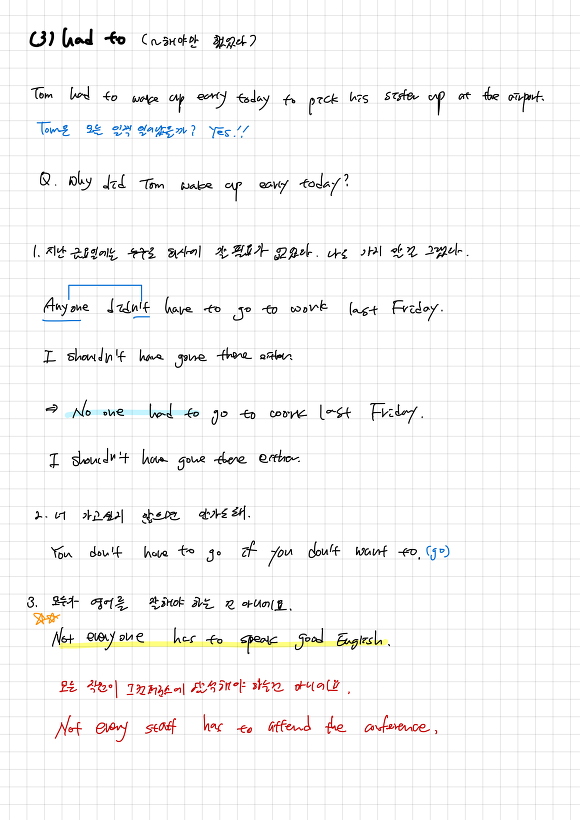 (3) had to (~해야만 했었다)
Tom had to wake up early today to pick his sister up at the airport.
Tom은 오늘 일찍 일어났을까? Yes!!
Q. Why did Tom wake up early today?
1. 지난 금요일에는 누구도 회사에 갈 필요가 없었다. 나도 가지 말 걸 그랬다.
Anyone didn't have to go to work last Friday.
I shouldn't have gone there either.
⇒ No one had to go to work last Friday.
I shouldn't have gone there either.
2. 너 가고싶지 않으면 안가도돼.
You don't have to go if you don't want to. (go)
3. 모두가 영어를 잘해야 하는 건 아니에요.
☆☆
Not everyone has to speak good English.
모든 직원이 그 컨퍼런스에 참석해야 하는건 아니에요.
Not every staff has to attend the conference.